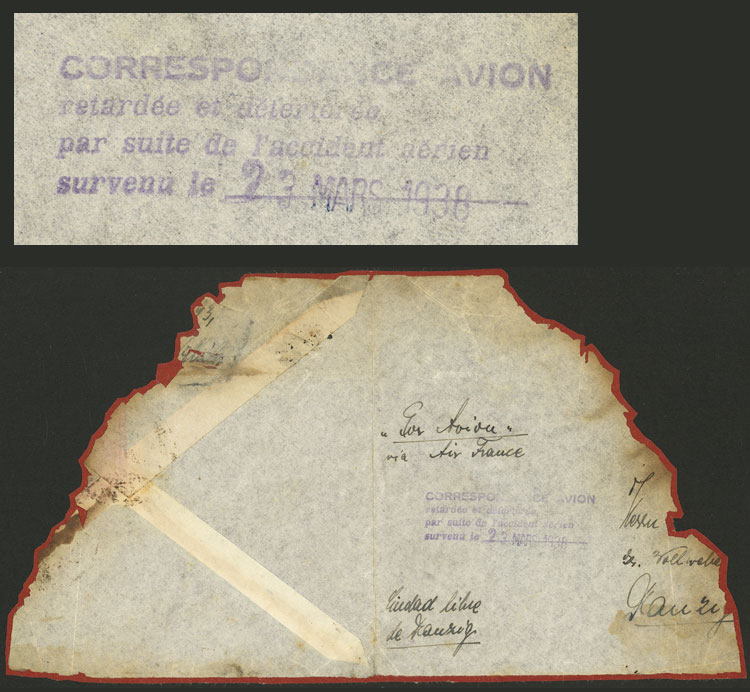 CORRESPONDANCE AVION
retardée et déteriorée
par suite de l'accident aérien
survenu le 23 MARS 1938
"Por Avion"
via Air France
CORRESPONDANCE AVION
retardée et déteriorée
par suite de l'accident aérien
survenu le 23 MARS 1938
Herrn
Danzig
Ciudad libre
de Danzig